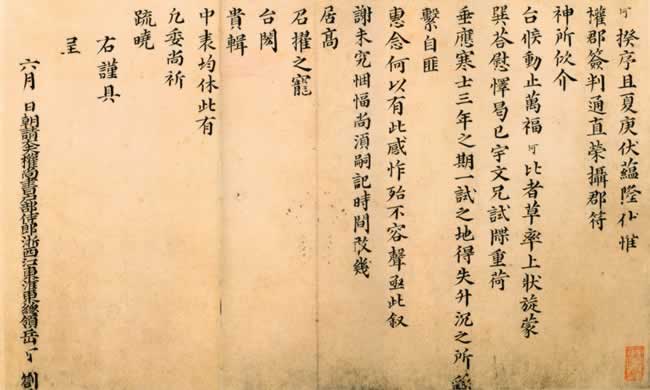 可揆序且夏庚伏蘊隆伏惟
權郡簽判通直榮攝郡符
神所依介
台候動止萬福可比者草率上狀旋蒙
巽荅慰懌曷已宇文兄試牒重荷
垂應寒士三年之期一試之地得失升沉之所
繫自匪
惠念何以有此感怍殆不容聲亟此叙
謝未究悃愊尚須嗣記時間敢幾
居高
召擢之寵
台閎
貴輯
中表均休此有
凡委尚祈
疏曉
右謹具
呈
六月 日朝請大夫權尚書戶部侍郎浙西江東淮東總領岳 可 劄